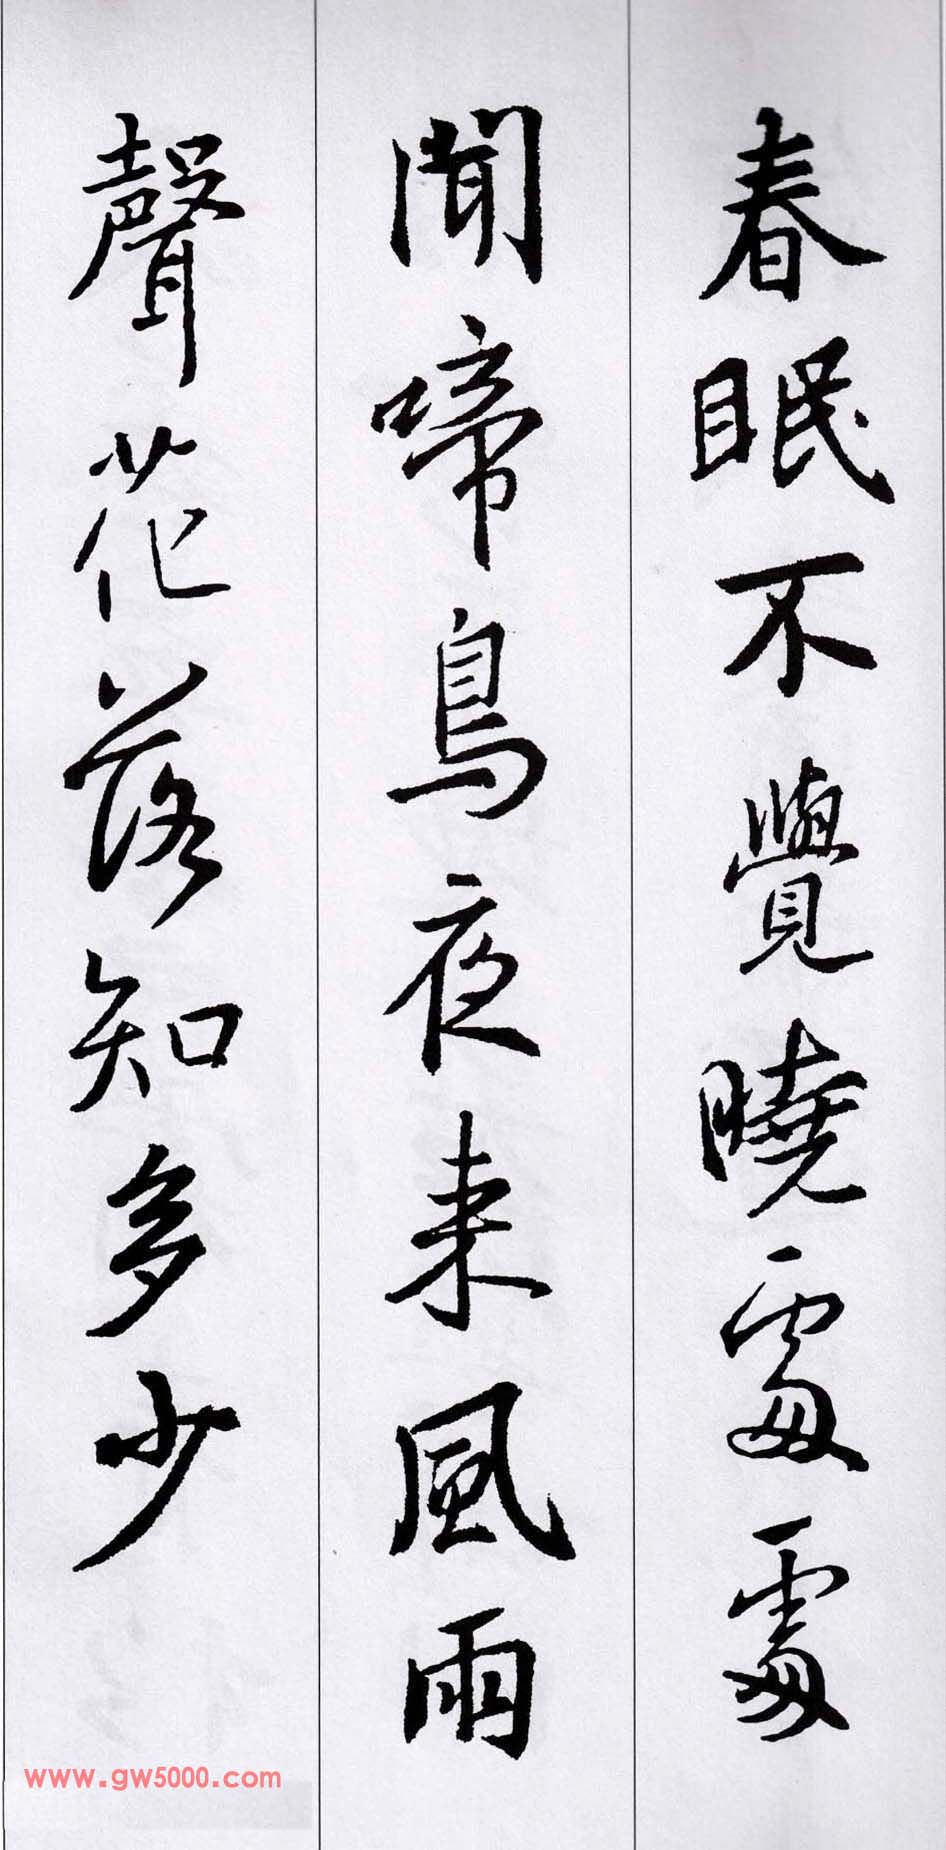 春眠不覺曉處處
聞啼鳥夜来風雨
聲花落知多少
www.gw5000.com